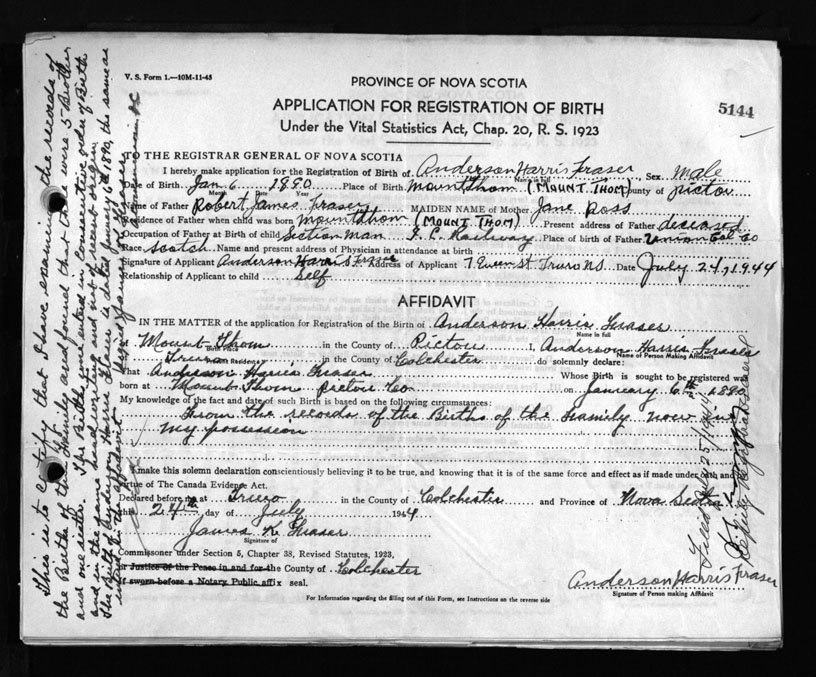 V. S. Form 1.—10M-11-43
PROVINCE OF NOVA SCOTIA
APPLICATION FOR REGISTRATION OF BIRTH
5144
Under the Vital Statistics Act, Chap. 20, R. S. 1923
TO THE REGISTRAR GENERAL OF NOVA SCOTIA
I hereby make application for the Registration of Birth of Anderson Harris Fraser, Sex Male
Name in full
Date of Birth Jan 6 1890 Place of Birth Mountthom (MOUNT THOM) County of Pictou
Month Year
Name of Father Robert James Fraser MAIDEN NAME of Mother Jane Ross
Residence of Father when child was born Mountthom (MOUNT THOM) Present address of Father deceased
Occupation of Father at Birth of child Section man I. C. Railway Place of birth of Father Union Col Co
Race Scotch Name and present address of Physician in attendance at birth
Signature of Applicant Anderson Harris Fraser Address of Applicant 7 Queen st Truro NS Date July 24, 1944
Relationship of Applicant to child Self
AFFIDAVIT
IN THE MATTER of the application for Registration of the Birth of Anderson Harris Fraser
Name in full
Mount Thom in the County of Pictou I, Anderson Harris Fraser
Birth Place Name of Person Making Affidavit
Truro in the County of Colchester do solemnly declare:
Residence
That Anderson Harris Fraser Whose Birth is sought to be registered was
born at Mount Thom Pictou Co on January 6th 1890
My knowledge of the fact and date of such Birth is based on the following circumstances:
From the records of the Births of the family now in
my possession
I make this solemn declaration conscientiously believing it to be true, and knowing that it is of the same force and effect as if made under oath and
virtue of The Canada Evidence Act.
Declared before me at Truro in the County of Colchester and Province of Nova Scotia
this 24th day of July 1944
James K Fraser
Signature of
Commissioner under Section 5, Chapter 38, Revised Statutes, 1923,
or Justice of the Peace in and for the County of Colchester
If sworn before a Notary Public affix seal.
Anderson Harris Fraser
Signature of Person making Affidavit
For Information regarding the filling out of this Form, see Instructions on the reverse side
This is to certify that I have examined the records of
the Births of the family and found that there were 5 Brothers
and one sister. The Births are entered in consecutive order of Birth
and in the same hand writing and not of recent origin.
The Birth of Anderson Harris Fraser is dated January 6th 1890, the same as
in affidavit
Deputy Registrar General